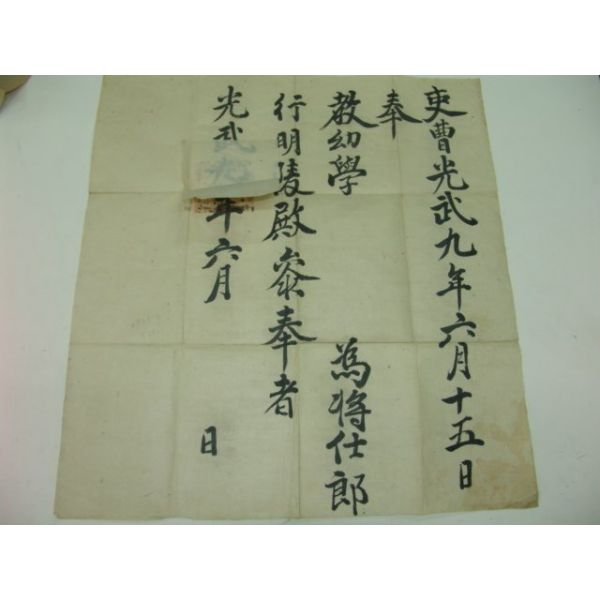 吏曹光武九年六月十五日
奉
教幼學 為將仕郎
行明陵殿參奉者
光武 年六月 日